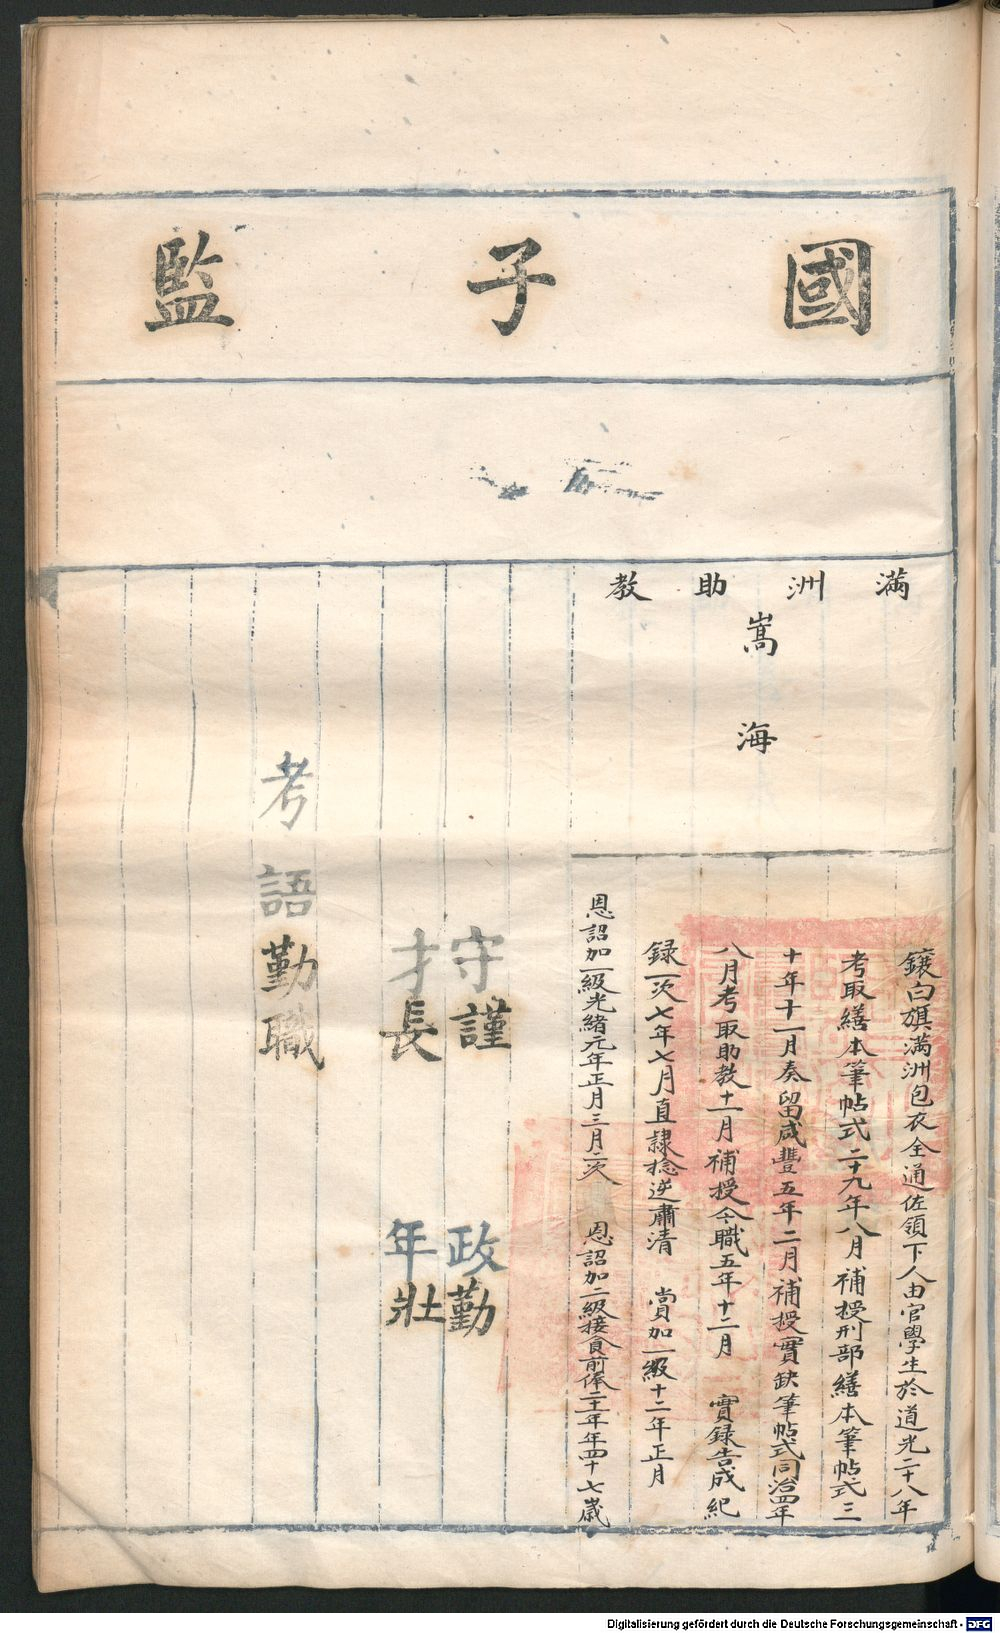 國子監
滿洲助教
嵩海
鑲白旗滿洲包衣全通佐領下人由官學生於道光二十八年
考取繕本筆帖式二十九年八月補授刑部繕本筆帖式三
十年十一月奏留咸豐五年二月補授實缺筆帖式同治四年
八月考取助教十一月補授今職五年十二月 實錄告成紀
錄一次七年七月直隸捻逆肅清 賞加一級十二年正月
恩詔加一級光緒元年正月三月二次 恩詔加二級接食前俸二十年年四十七歲
守謹 政勤
才長 年壯
考語勤職
Digitalisierung gefördert durch die Deutsche Forschungsgemeinschaft - DFG